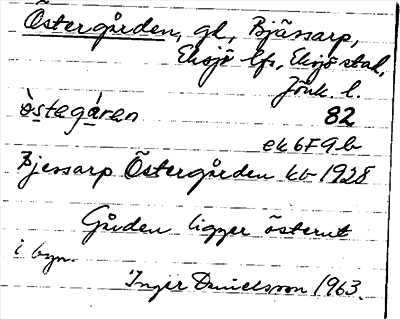 Östergården, gd, Bjässarp,
Eksjö lfs, Eksjö stad,
Jönk. l.
östegåren 82
ek 6F9b
Bjessarp Östergården kb 1928
Gården ligger österut
i byn.
Inger Danielsson 1963.